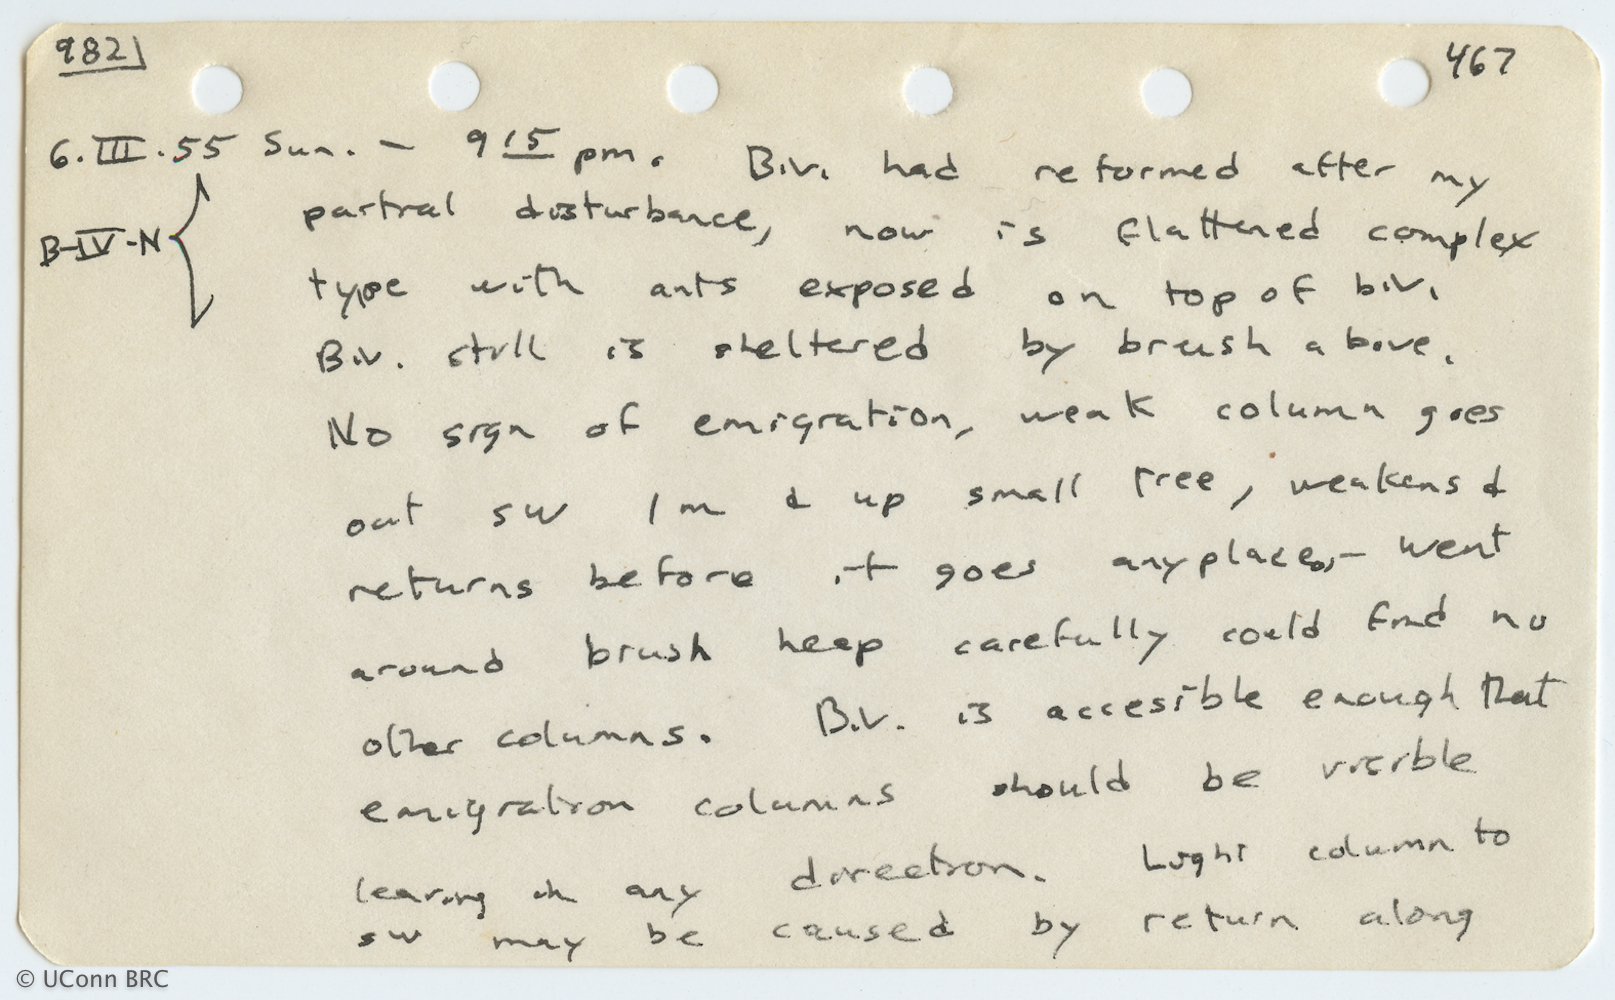 982
467
6.III.55 Sun. - 9 15 pm. B.v. had reformed after my
B-IV-N
partial disturbance, now is flattened complex
type with ants exposed on top of biv.
Biv. still is sheltered by brush above.
No sign of emigration, weak column goes
out SW 1 m & up small tree, weakens &
returns before it goes anyplace, - went
around brush heap carefully could find no
other columns. B.v. is accesible enough that
emigration columns should be visible
leaving in any direction. Light column to
SW may be caused by return along
© UConn BRC